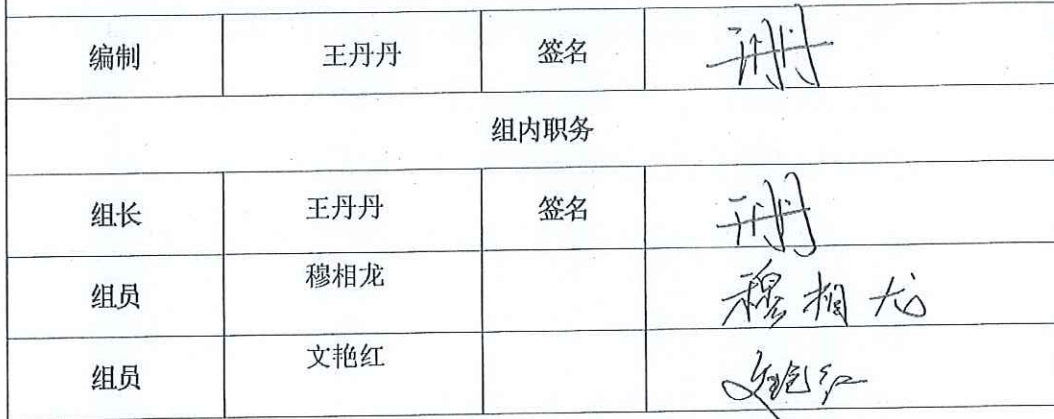 编制 王丹丹 签名
组内职务
组长 王丹丹 签名
组员 穆相龙 穆相龙
组员 文艳红 文艳红